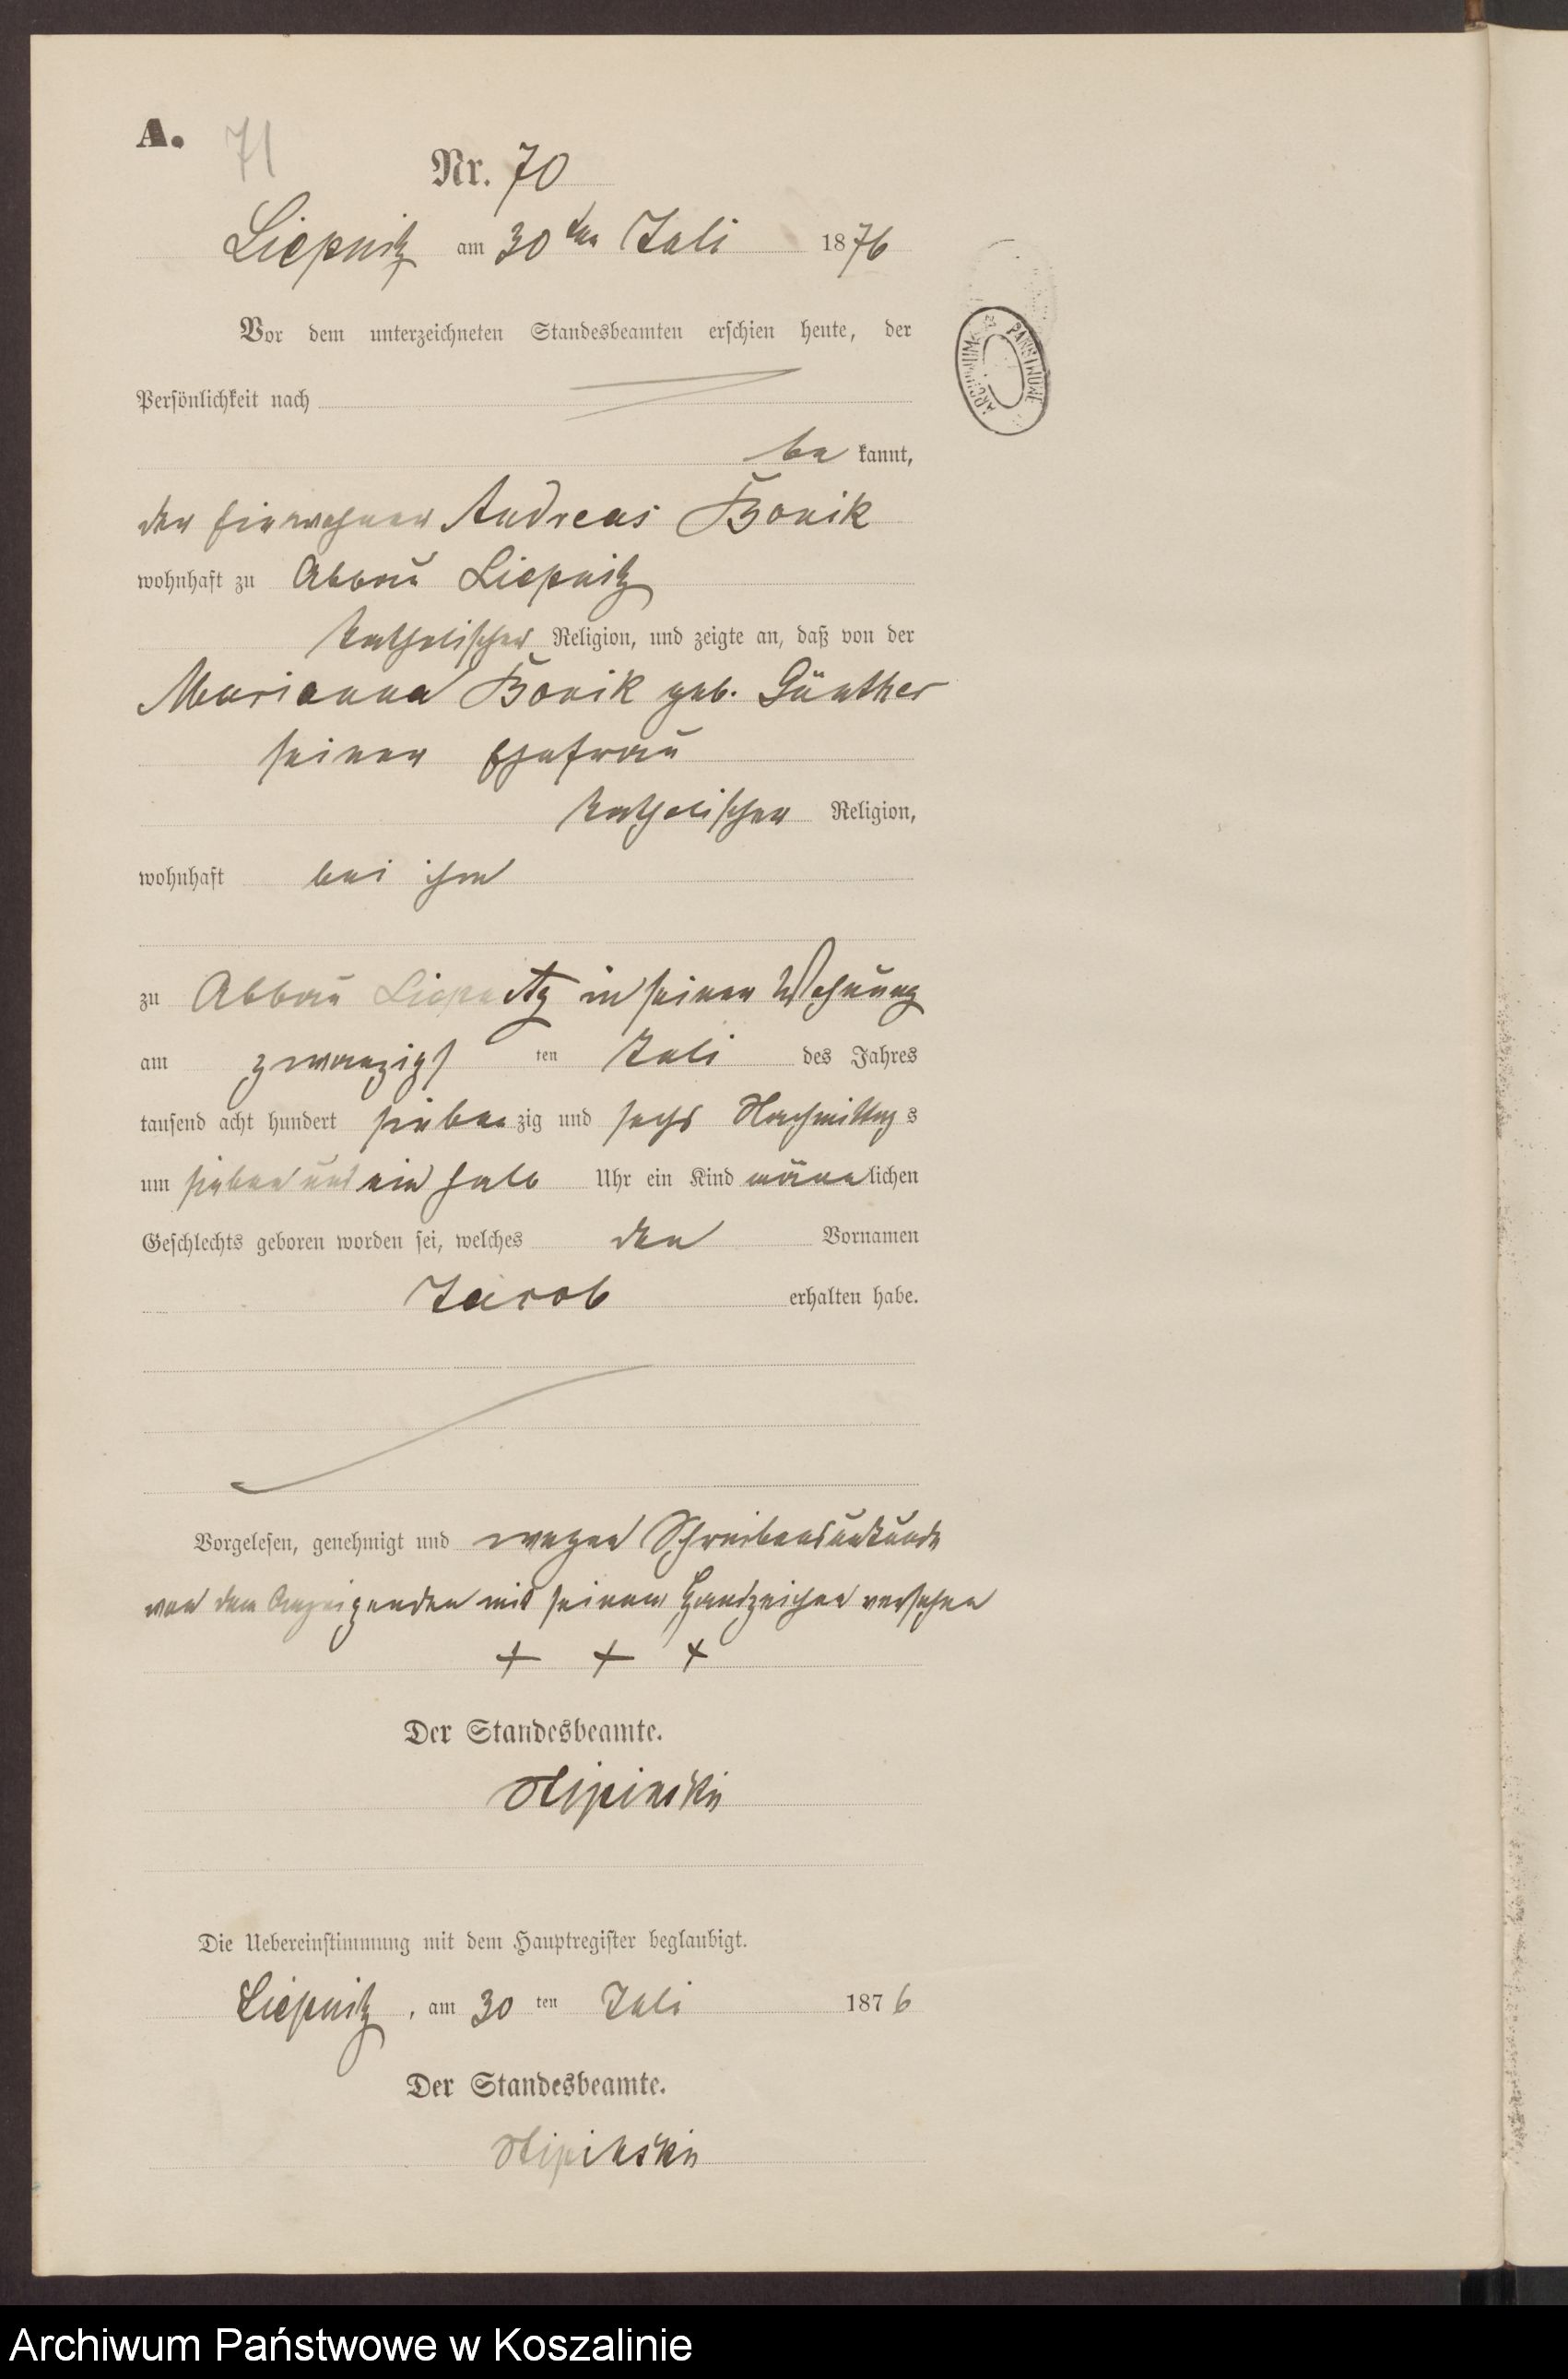 A. 71
Nr. 70
Liepnitz am 30ten Juli 1876
Vor dem unterzeichneten Standesbeamten erschien heute, der
Persönlichkeit nach
be kannt,
der Einwohner Andreas Bonik
wohnhaft zu Abbau Liepnitz
katholischer Religion, und zeigte an, daß von der
Marianna Bonik geb. Günther
seiner Ehefrau
katholischer Religion,
wohnhaft bei ihm
zu Abbau Liepnitz in seiner Wohnung
am zwanzigs ten Juli des Jahres
tausend acht hundert sieben zig und sechs Nachmittag s
um sieben und ein halb Uhr ein Kind männ lichen
Geschlechts geboren worden sei, welches den Vornamen
Jacob erhalten habe.
Vorgelesen, genehmigt und wegen Schreibensunkunde
von dem Anzeigenden mit seinem Handzeichen versehen
+ + +
Der Standesbeamte.
Die Uebereinstimmung mit dem Hauptregister beglaubigt.
Liepnitz, am 30 ten Juli 1876
Der Standesbeamte.
ARCHIWUM PAŃSTWOWE
Archiwum Państwowe w Koszalinie